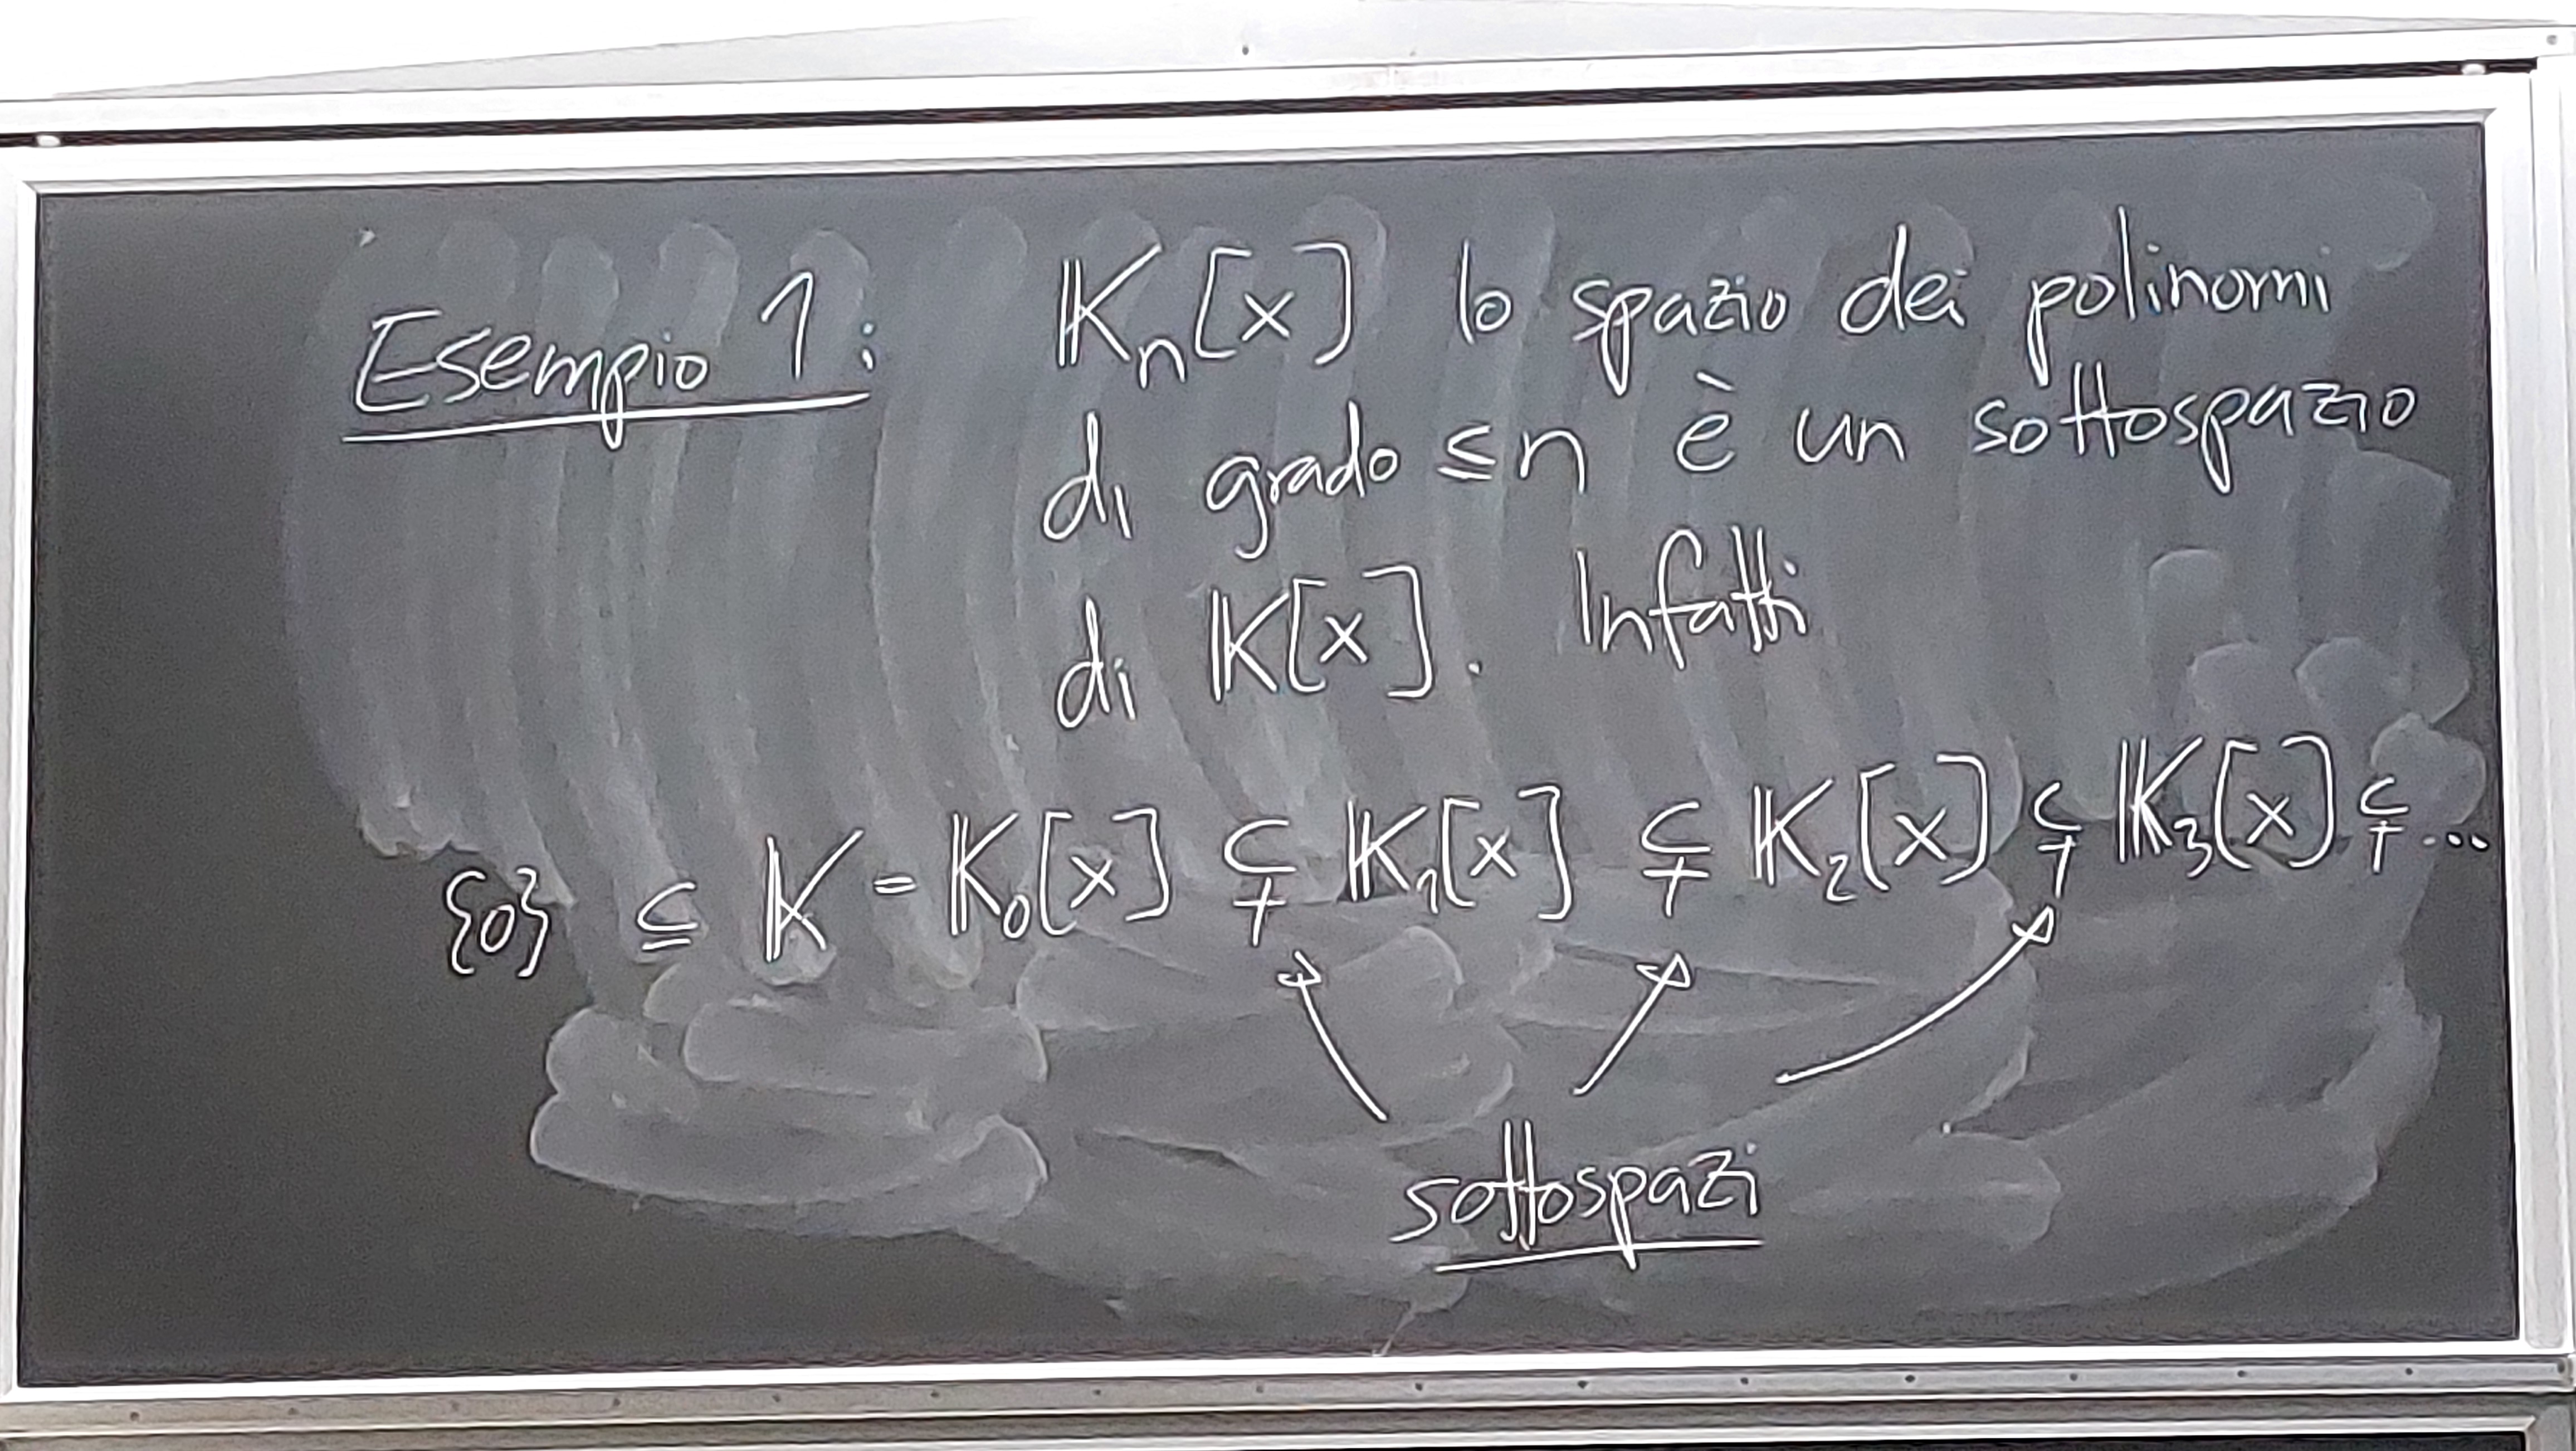 Esempio 1: 𝕂ₙ[x] lo spazio dei polinomi
di grado ≤ n è un sottospazio
di 𝕂[x]. Infatti
{0} ⊆ 𝕂 = 𝕂₀[x] ⊊ 𝕂₁[x] ⊊ 𝕂₂[x] ⊊ 𝕂₃[x] ⊊ ...
sottospazi